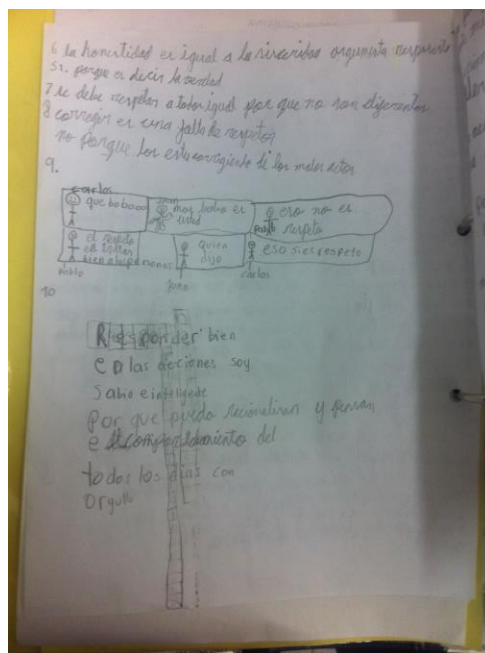 6 la honestidad es igual a la sinceridad argumenta respuesta
si. porque es decir la verdad
7 se debe respetar a todos igual por que no son diferentes
8 corregir es una falta de respeto
no porque los esta corrigiendo de los malos actos
9.
carlos
que bobooo
Juan
mas bobo es usted
eso no es respeto
Pablo
el respeto es tratar bien a las personas
quien dijo
eso si es respeto
Pablo
Juan
carlos
10
Responder bien
en las acciones soy
Sabio e inteligente
Por que puedo racionalizar y pensar
el comportamiento del
todos los dias con
Orgullo